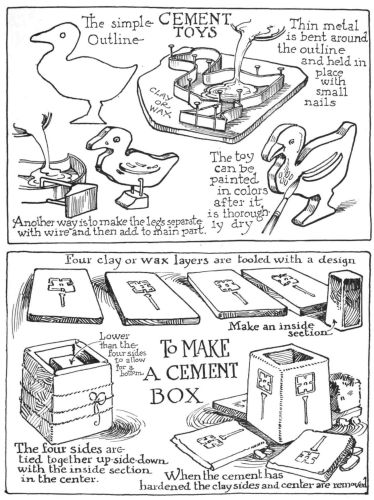 The simple
Outline-
CEMENT
TOYS
Thin metal
is bent around
the outline
and held in
place
with
small
nails
CLAY
OR
WAX
The toy
can be
painted
in colors
after it
is thorough
ly dry
Another way is to make the legs separate
with wire and then add to main part.
Four clay or wax layers are tooled with a design
Make an inside
section
Lower
than the
four sides
to allow
for a
bottom
To MAKE
A CEMENT
BOX
The four sides are
tied together up-side-down
with the inside section
in the center.
When the cement has
hardened the clay sides and center are removed